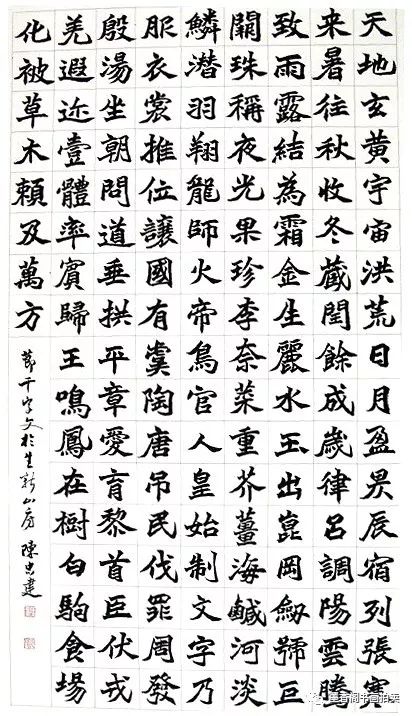 天地玄黃宇宙洪荒日月盈昃辰宿列張寒
来暑往秋收冬藏閏餘成歲律呂調陽雲騰
致雨露結為霜金生麗水玉出崑岡劒號巨
闕珠稱夜光果珍李柰菜重芥薑海鹹河淡
鱗潛羽翔龍師火帝鳥官人皇始制文字乃
服衣裳推位讓國有虞陶唐吊民伐罪周發
殷湯坐朝問道垂拱平章愛育黎首臣伏戎
羌遐迩壹體率賓歸王鳴鳳在樹白駒食場
化被草木賴及萬方
節千字文於生新山房 陳忠建